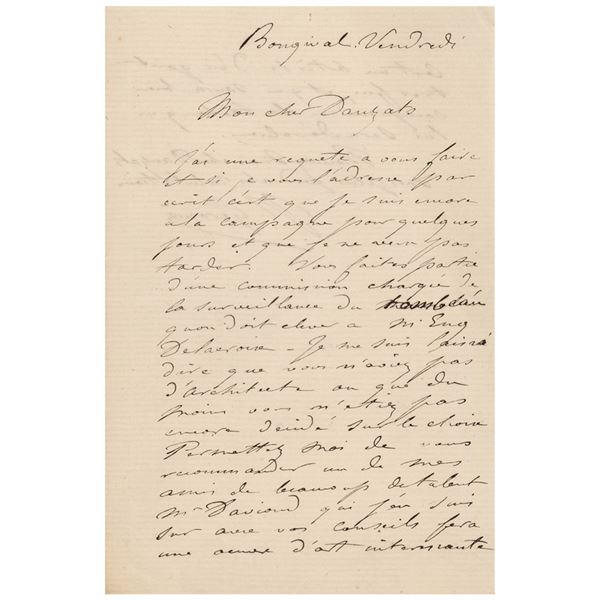 Bougival. Vendredi
Mon cher Dauzats
J'ai une requete a vous faire
et si je vous l'adresse par
ecrit c'est que je suis encore
a la campagne pour quelques
jours et que je ne veux pas
tarder. Vous faites partie
d'une commission chargée de
la surveillance du tombeau
qu'on doit elever a Mr Eug
Delacroix - Je me suis laissé
dire que vous n'aviez pas
d'architecte ou que du
moins vous n'etiez pas
encore decidé sur le choix
Permettez moi de vous
recommander un de mes
amis de beaucoup de talent
Mr Davioud qui j'en suis
sur avec vos conseils fera
une oeuvre d'art interessante